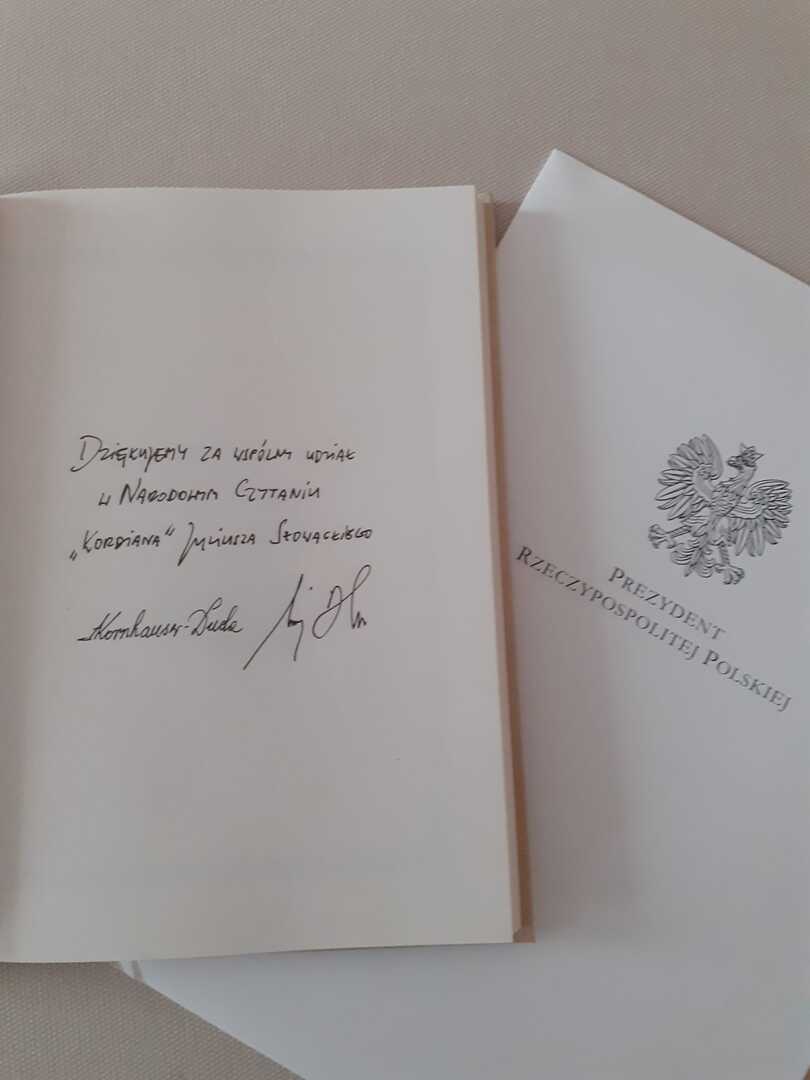 Dziękujemy za wspólny udział
w Narodowym Czytaniu
„Kordiana" Juliusza Słowackiego
AKornhauser-Duda
Prezydent
Rzeczypospolitej Polskiej